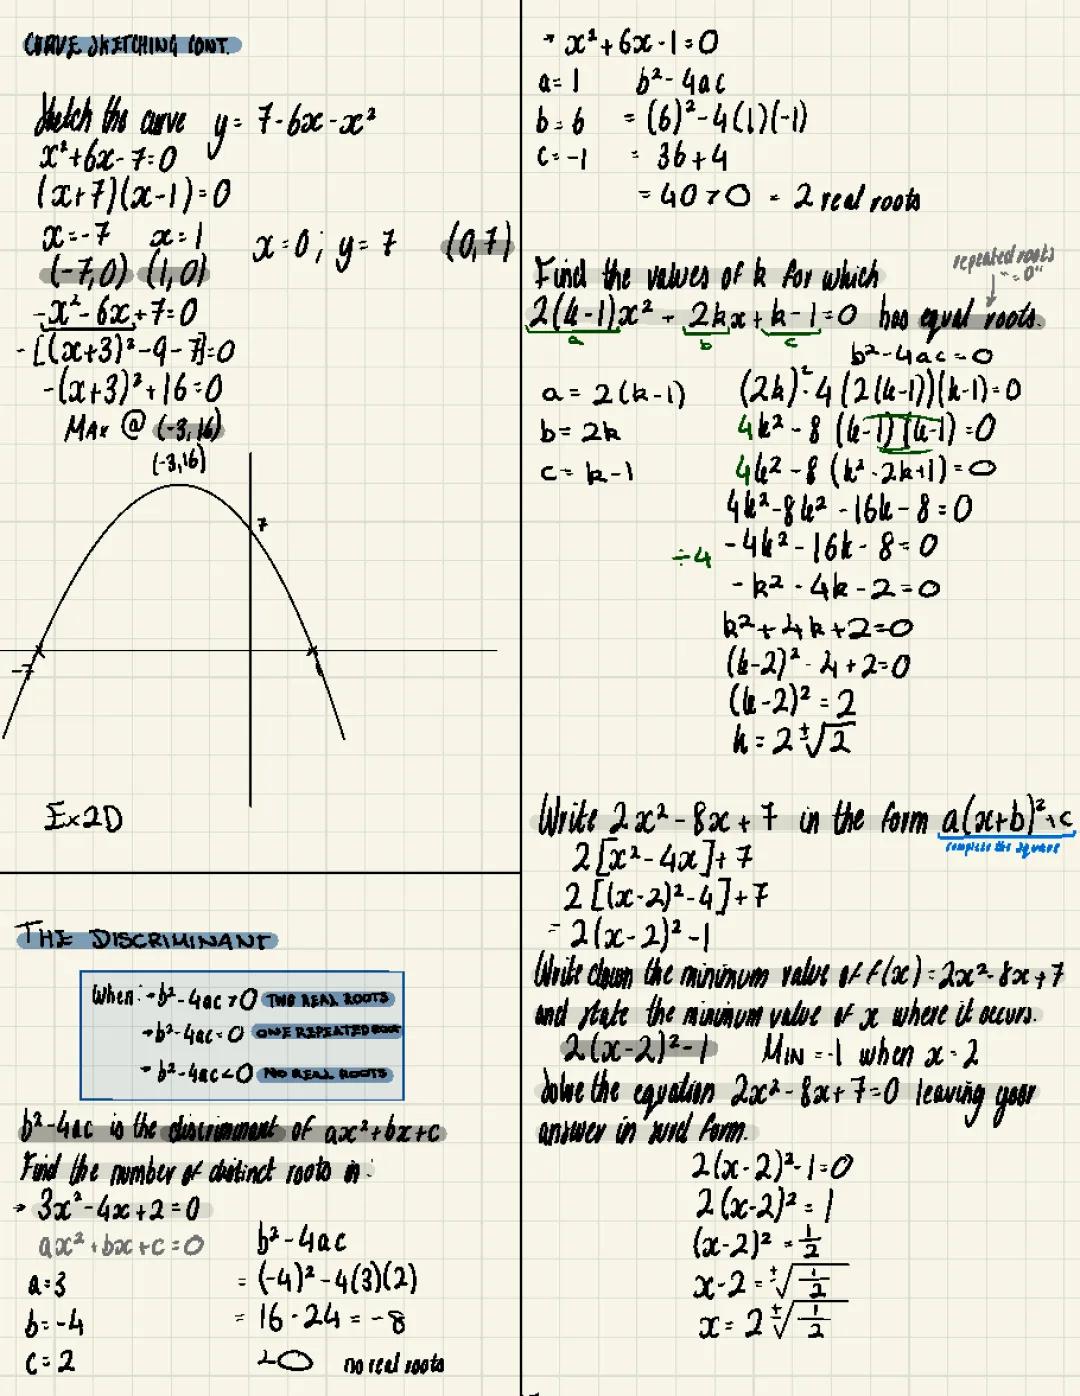 CURVE SKETCHING CONT.
Sketch the curve y = 7-6x-x²
x²+6x-7=0
(x+7)(x-1)=0
x=-7 x=1 x=0; y=7 (0,7)
(-7,0) (1,0)
-x²-6x+7=0
-[(x+3)²-9-7]=0
-(x+3)²+16=0
MAX @ (-3,16)
(-3,16)
7
-7
Ex2D
THE DISCRIMINANT
When: → b²-4ac >0 TWO REAL ROOTS
→ b²-4ac=0 ONE REPEATED ROOT
→ b²-4ac<0 NO REAL ROOTS
b²-4ac is the discriminant of ax²+bx+c
Find the number of distinct roots in:
→ 3x²-4x+2=0
ax²+bx+c=0 b²-4ac
a=3 = (-4)²-4(3)(2)
b=-4 = 16-24 = -8
c=2 <0 no real roots
→ x²+6x-1=0
a=1 b²-4ac
b=6 = (6)²-4(1)(-1)
c=-1 = 36+4
= 40>0 = 2 real roots
repeated roots
"=0"
Find the values of k for which
2(k-1)x² - 2kx + k-1=0 has equal roots.
a b c
b²-4ac=0
a=2(k-1) (2k)²-4(2(k-1))(k-1)=0
b=2k 4k²-8(k-1)(k-1)=0
c=k-1 4k²-8(k²-2k+1)=0
4k²-8k²-16k-8=0
÷4 -4k²-16k-8=0
-k²-4k-2=0
k²+4k+2=0
(k-2)²-4+2=0
(k-2)²=2
k=2±√2
Write 2x²-8x+7 in the form a(x+b)²+c
complete the square
2[x²-4x]+7
2[(x-2)²-4]+7
=2(x-2)²-1
Write down the minimum value of f(x)=2x²-8x+7
and state the minimum value of x where it occurs.
2(x-2)²-1 MIN=-1 when x=2
Solve the equation 2x²-8x+7=0 leaving your
answer in surd form.
2(x-2)²-1=0
2(x-2)²=1
(x-2)²=1/2
x-2=±√1/2
x=2±√1/2